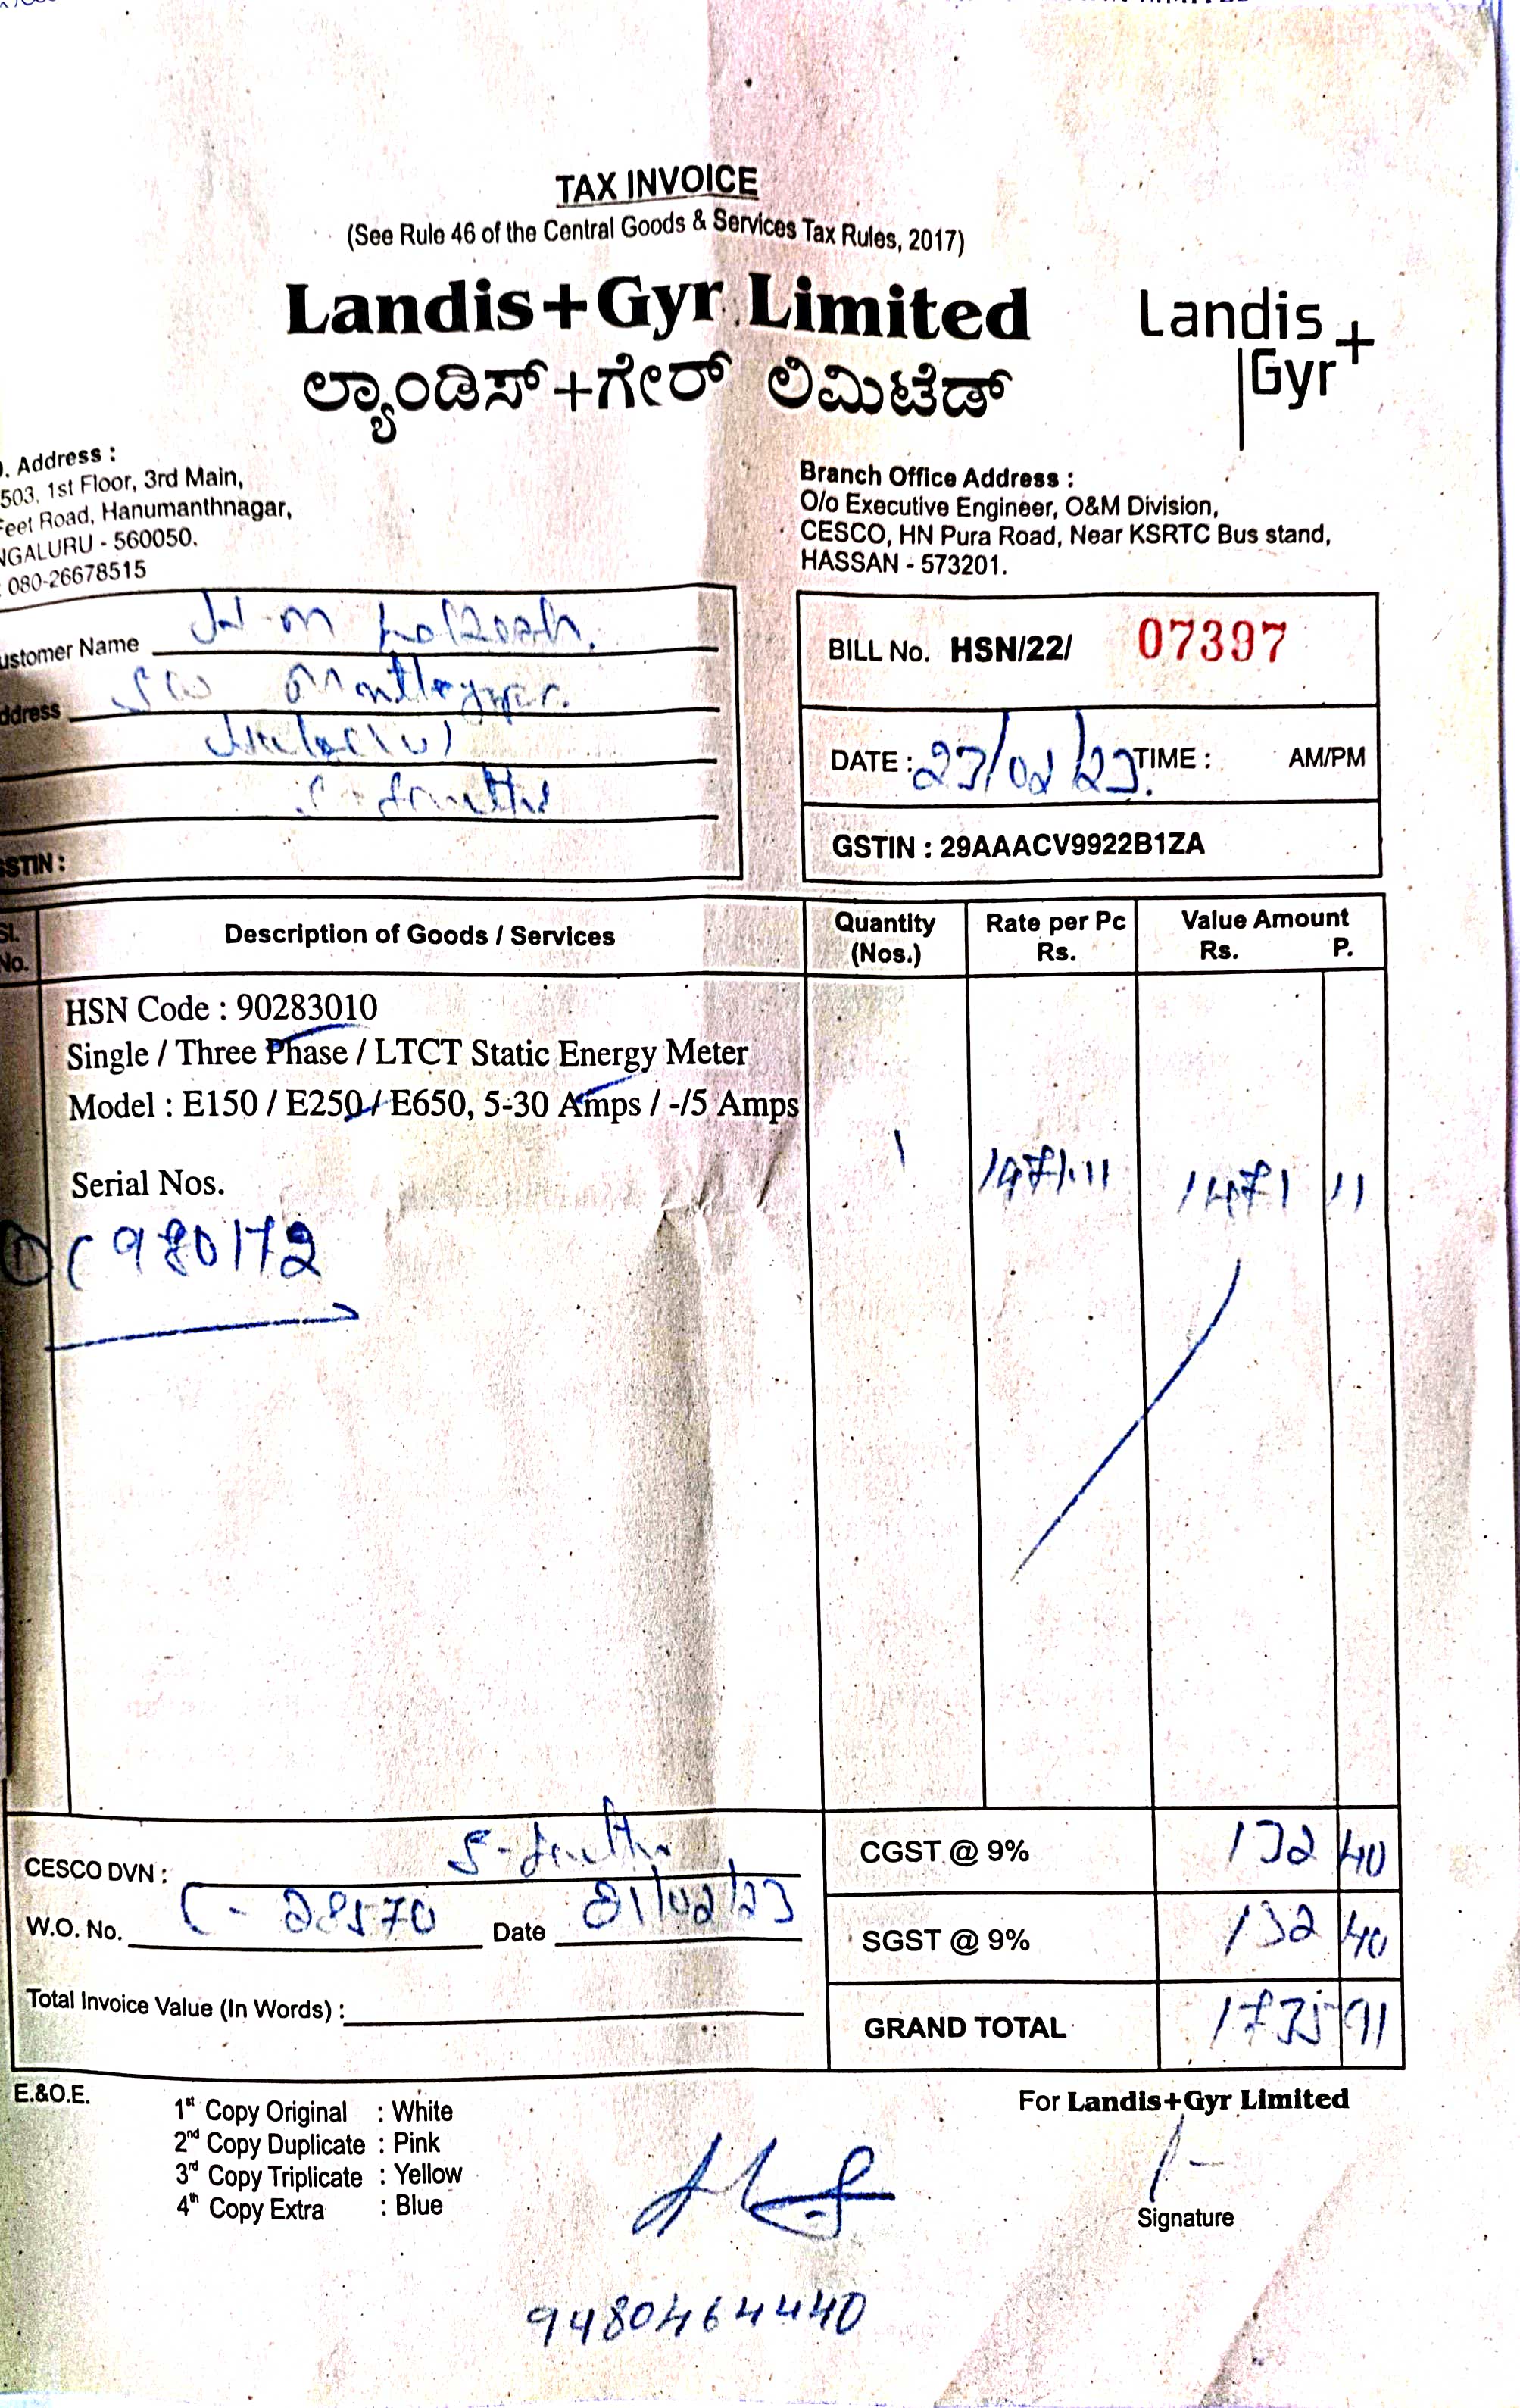 TAX INVOICE
(See Rule 46 of the Central Goods & Services Tax Rules, 2017)
Landis+Gyr Limited
ಲ್ಯಾಂಡಿಸ್+ಗೇರ್ ಲಿಮಿಟೆಡ್
Landis+
Gyr
. Address :
503, 1st Floor, 3rd Main,
Feet Road, Hanumanthnagar,
NGALURU - 560050.
: 080-26678515
Branch Office Address :
O/o Executive Engineer, O&M Division,
CESCO, HN Pura Road, Near KSRTC Bus stand,
HASSAN - 573201.
ustomer Name H-M
ddress S/o
STIN :
BILL No. HSN/22/ 07397
DATE : 23/02/23. TIME : AM/PM
GSTIN : 29AAACV9922B1ZA
Sl. No. Description of Goods / Services Quantity (Nos.) Rate per Pc Rs. Value Amount Rs. P.
HSN Code : 90283010
Single / Three Phase / LTCT Static Energy Meter
Model : E150 / E250 / E650, 5-30 Amps / -/5 Amps
1 1471.11 1471 11
Serial Nos.
1 C 980172
CESCO DVN :
CGST @ 9% 132 40
W.O. No. C - 28570 Date 21/02/23
SGST @ 9% 132 40
Total Invoice Value (In Words) :
GRAND TOTAL 1735 91
E.&O.E.
1st Copy Original : White
2nd Copy Duplicate : Pink
3rd Copy Triplicate : Yellow
4th Copy Extra : Blue
For Landis+Gyr Limited
Signature
9480464440